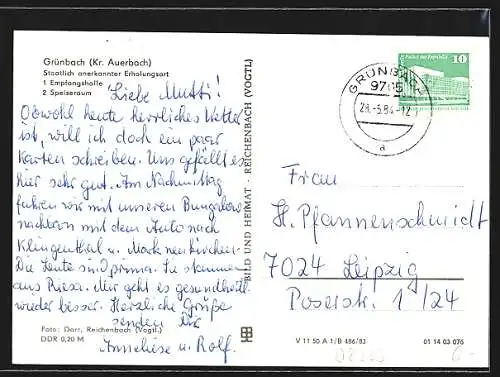 Grünbach (Kr. Auerbach)
Staatlich anerkannter Erholungsort
1 Empfangshalle
2 Speiseraum
Liebe Mutti!
Obwohl heute herrliches Wetter
ist, will ich doch ein paar
Karten schreiben. Uns gefällt es
hier sehr gut. Am Nachmittag
fuhren wir mit unseren Bungalow
nachbarn mit dem Auto nach
Klingenthal u. Markneukirchen.
Die Leute sind prima. Sie stammen
aus Riesa. Mir geht es gesundheitl.
wieder besser. Herzliche Grüße
senden Dir
Anneliese u. Rolf.
Foto: Darr, Reichenbach (Vogtl.)
DDR 0,20 M
BILD UND HEIMAT · REICHENBACH (VOGTL)
GRÜNBACH
9705
28.-5.84-12
a
Palast der Republik
10
DDR
Frau
H. Pfannenschmidt
7024 Leipzig
Poserstr. 1 /24
V 11 50 A 1/B 486/83
01 14 03 076